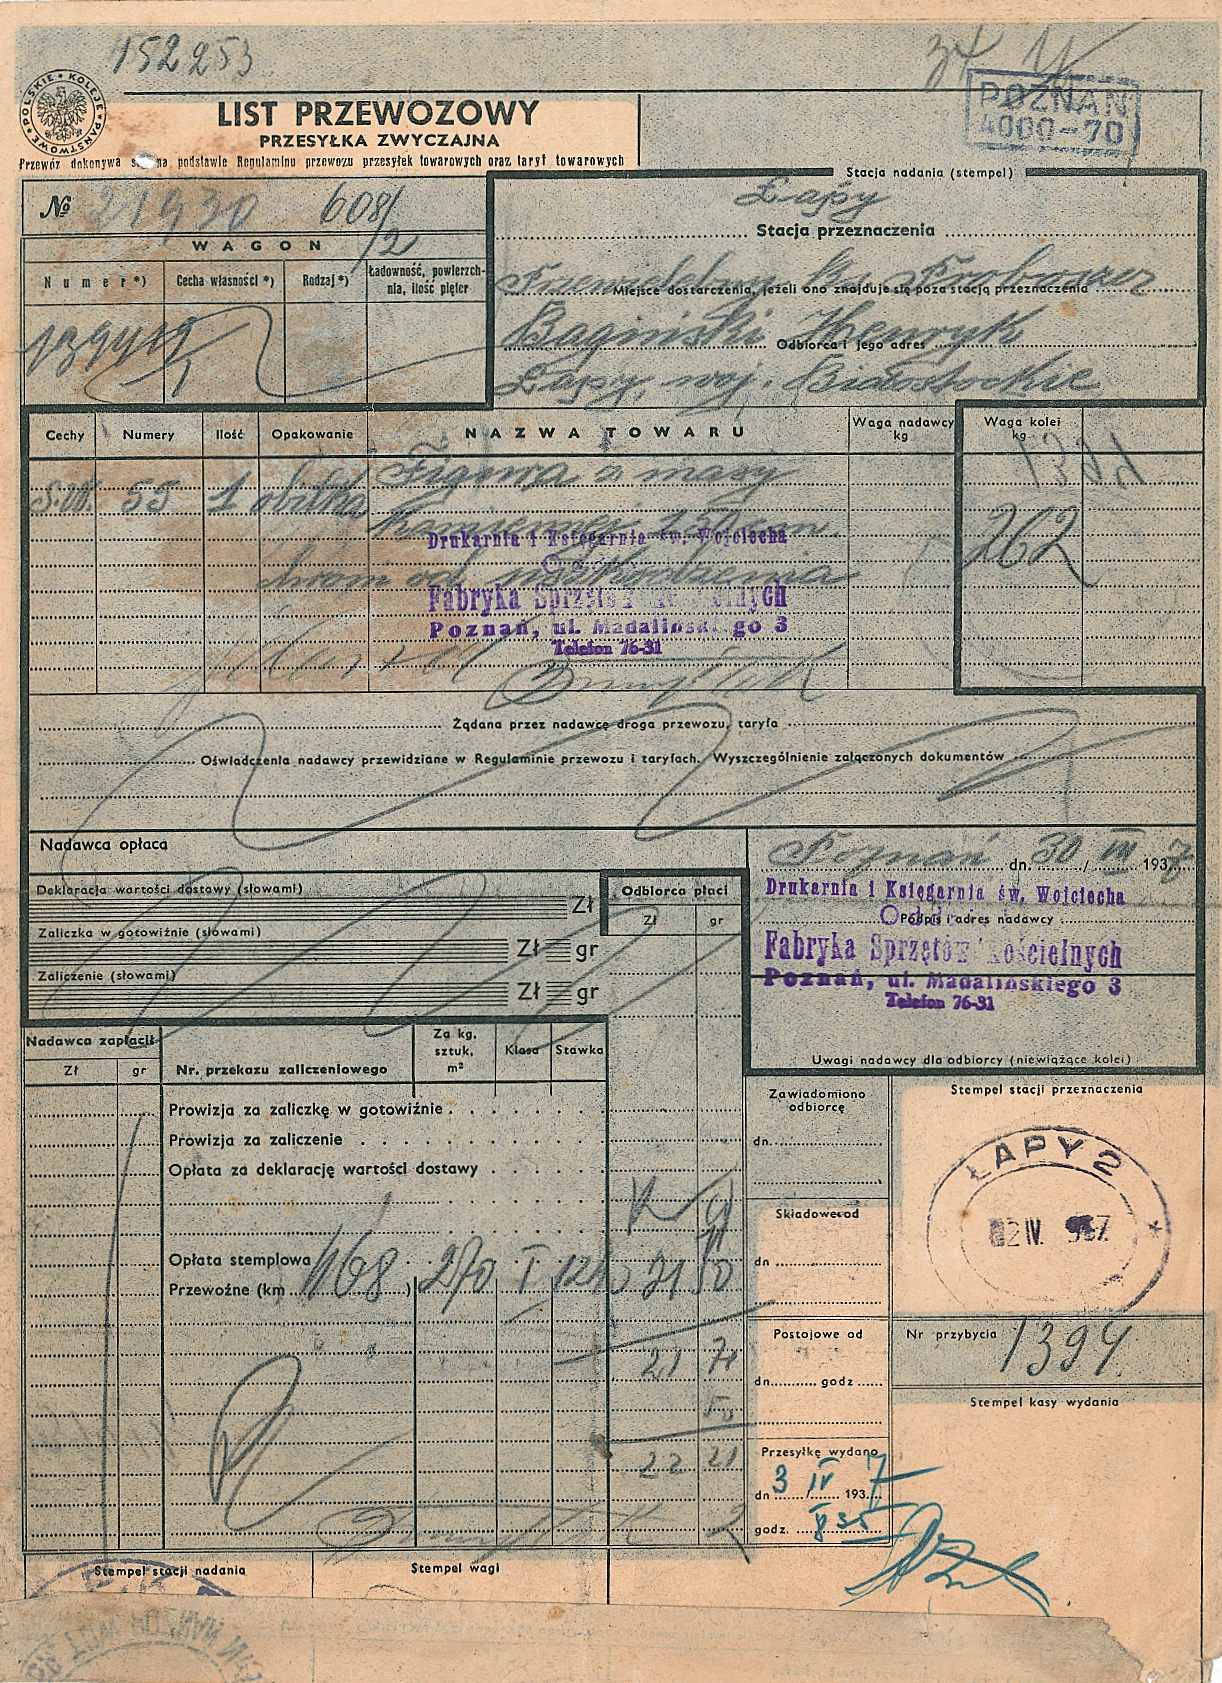 152253
POLSKIE KOLEJE PAŃSTWOWE
POZNAŃ
4000-70
LIST PRZEWOZOWY
PRZESYŁKA ZWYCZAJNA
Przewóz dokonywa się na podstawie Regulaminu przewozu przesyłek towarowych oraz taryf towarowych
Stacja nadania (stempel)
№ 21930 608/2
Łapy
Stacja przeznaczenia
WAGON
Numer*) Cecha własności*) Rodzaj*) Ładowność, powierzchnia, ilość pięter
Proboszcz
Miejsce dostarczenia, jeżeli ono znajduje się poza stacją przeznaczenia
Bagiński Henryk
Odbiorca i jego adres
Łapy, woj. Białostockie
Cechy Numery Ilość Opakowanie NAZWA TOWARU Waga nadawcy kg Waga kolei kg
S.W. 55 1 obitka Figura z masy
kamiennej 150 cm.
262
Drukarnia i Księgarnia św. Wojciecha
chronić od uszkodzenia
Fabryka Sprzętów Kościelnych
Poznań, ul. Madalińskiego 3
Telefon 76-31
Żądana przez nadawcę droga przewozu, taryfa
Oświadczenia nadawcy przewidziane w Regulaminie przewozu i taryfach. Wyszczególnienie załączonych dokumentów
Nadawca opłaca
Poznań dn. 30/III 1937
Deklaracja wartości dostawy (słowami)
Zł
Odbiorca płaci
Zł gr
Drukarnia i Księgarnia św. Wojciecha
Podpis i adres nadawcy
Zaliczka w gotowiźnie (słowami)
Zł gr
Fabryka Sprzętów Kościelnych
Poznań, ul. Madalińskiego 3
Telefon 76-31
Zaliczenie (słowami)
Zł gr
Uwagi nadawcy dla odbiorcy (niewiążące kolei)
Nadawca zapłacił
Zł gr
Nr. przekazu zaliczeniowego Za kg, sztuk, m² Klasa Stawka
Zawiadomiono odbiorcę
dn.
Stempel stacji przeznaczenia
Prowizja za zaliczkę w gotowiźnie
Prowizja za zaliczenie
Opłata za deklarację wartości dostawy
ŁAPY 2
02 IV. 937
Składowe od
dn
Opłata stemplowa
Przewoźne (km 468) 270 I
Postojowe od
dn. godz
Nr przybycia 1394
21
50
22 21
Stempel kasy wydania
Przesyłkę wydano
dn 3/IV 1937
godz.
Stempel stacji nadania
Stempel wagi